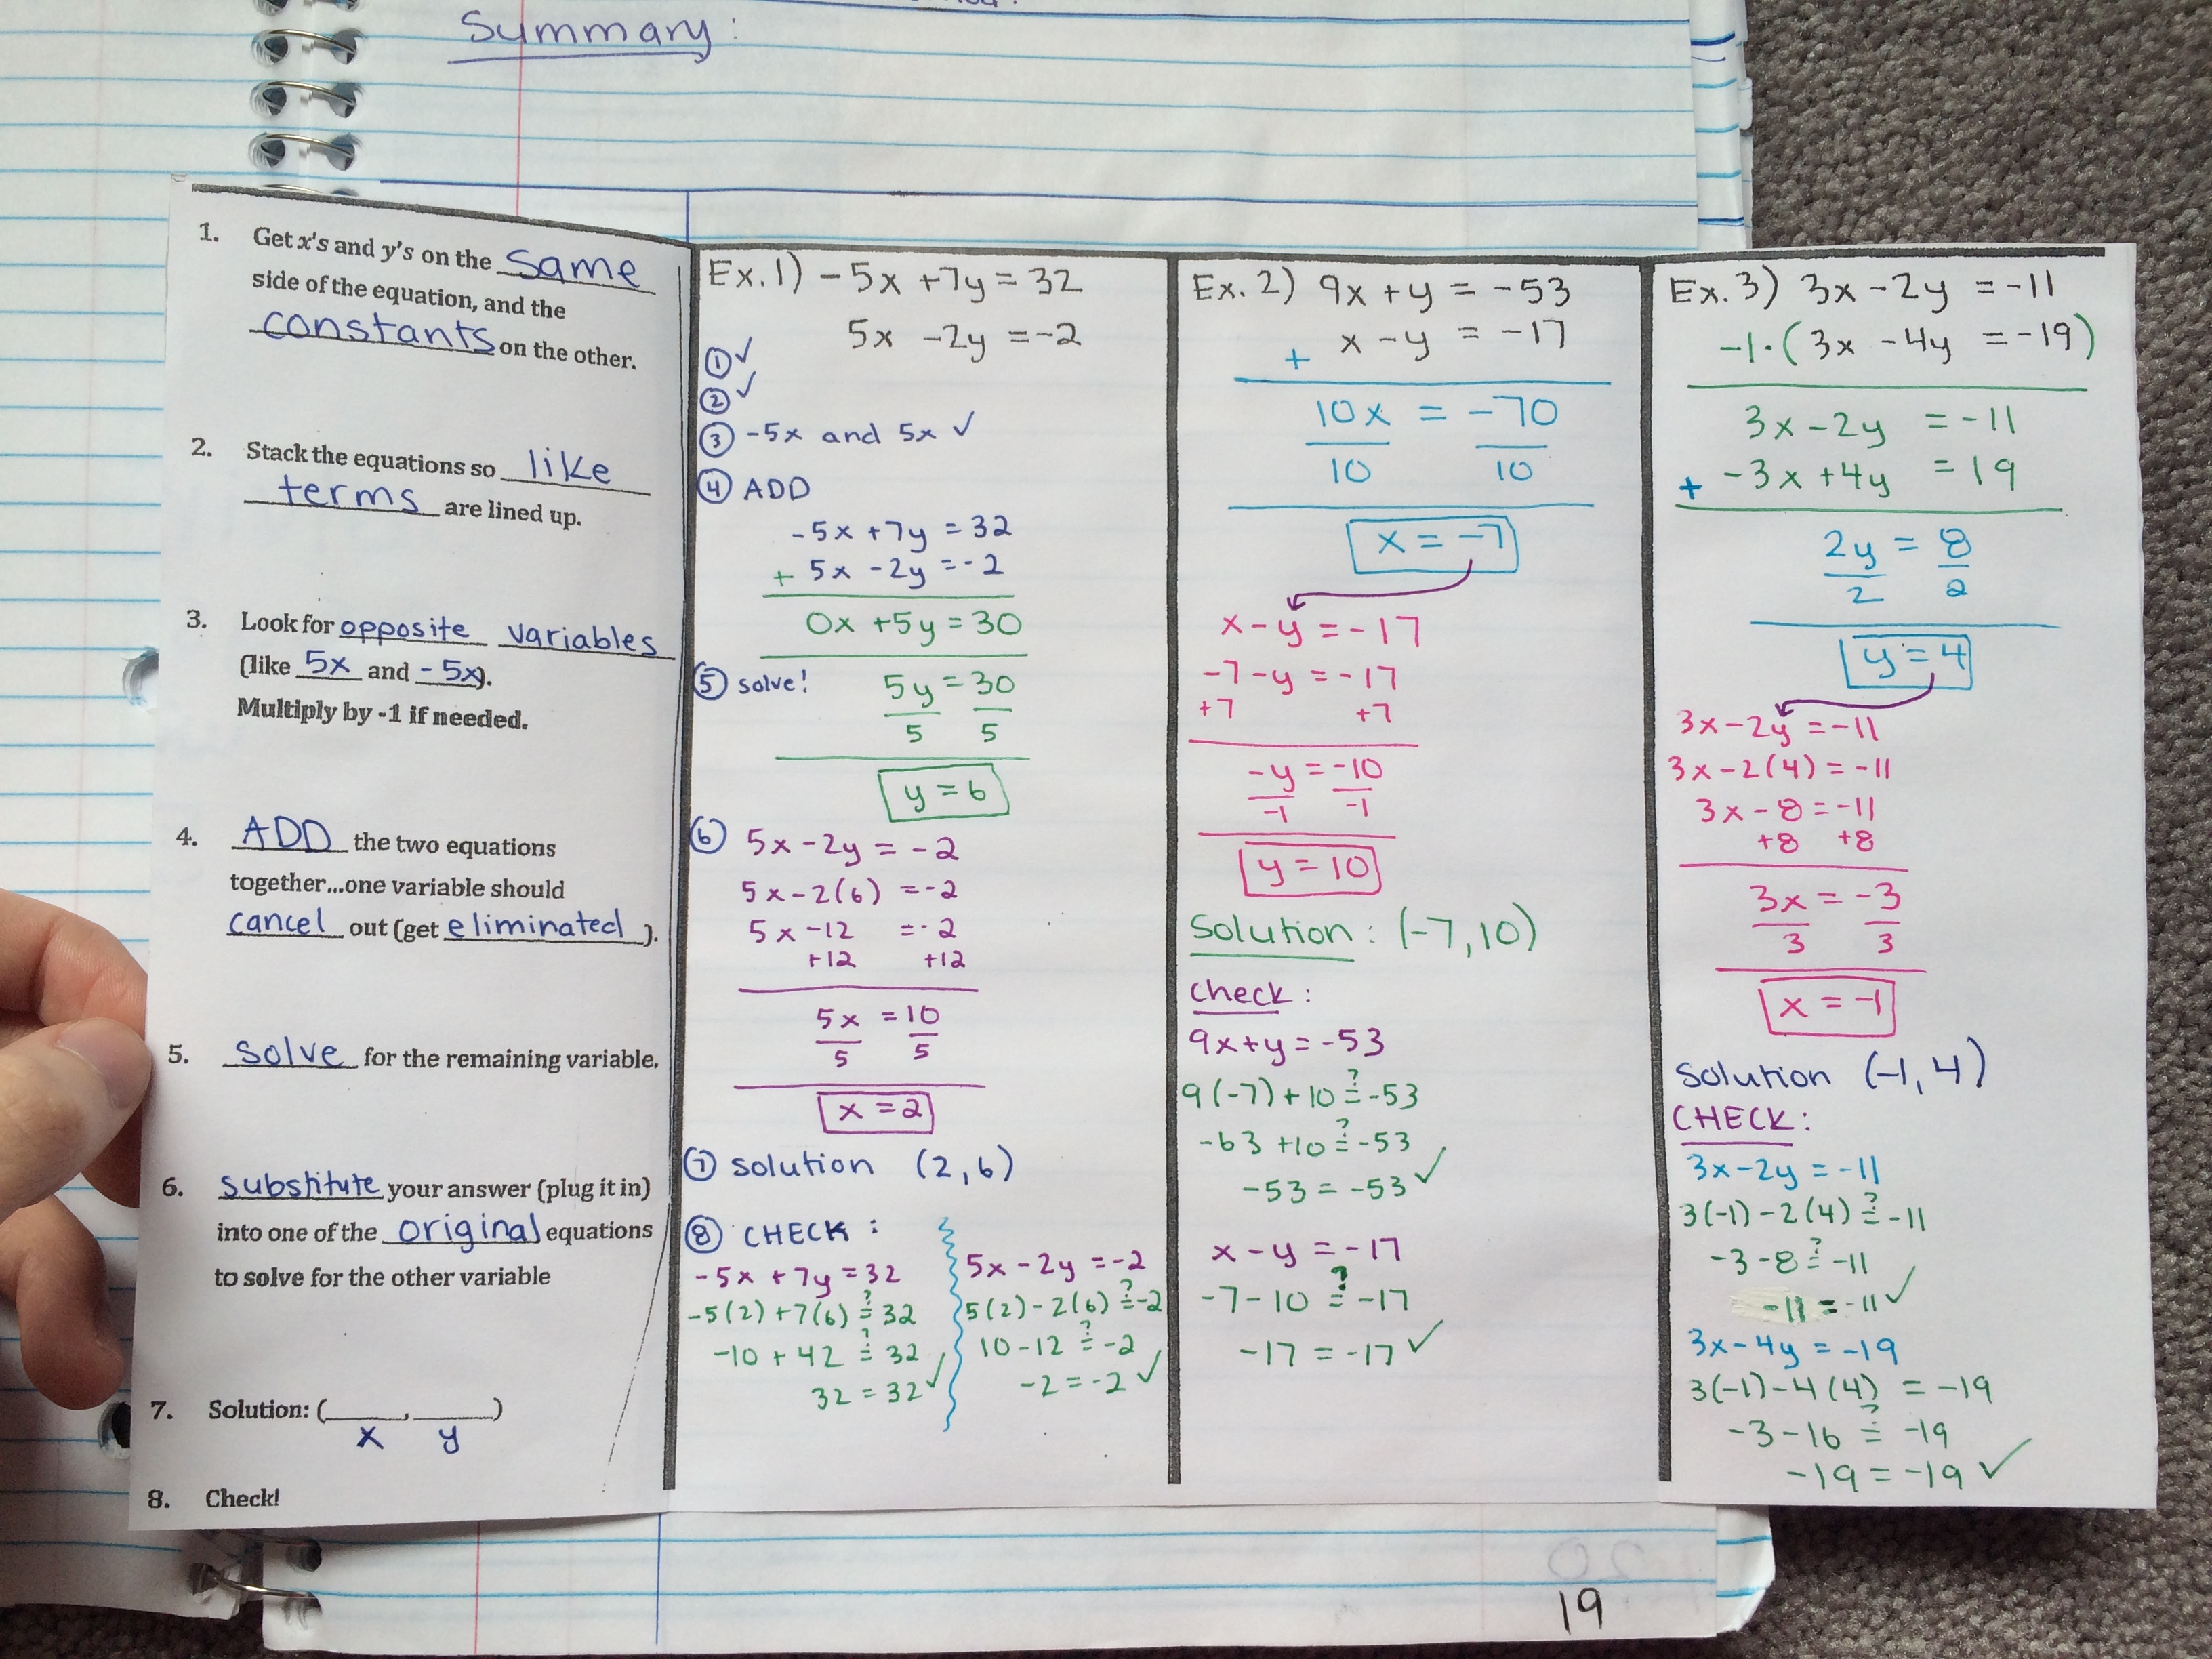 Summary:
1. Get x's and y's on the same
side of the equation, and the
constants on the other.
2. Stack the equations so like
terms are lined up.
3. Look for opposite variables
(like 5x and -5x).
Multiply by -1 if needed.
4. ADD the two equations
together...one variable should
cancel out (get eliminated).
5. solve for the remaining variable.
6. substitute your answer (plug it in)
into one of the original equations
to solve for the other variable
7. Solution: (____, ____)
x y
8. Check!
Ex. 1) -5x + 7y = 32
5x - 2y = -2
① ✓
② ✓
③ -5x and 5x ✓
④ ADD
-5x + 7y = 32
+ 5x - 2y = -2
0x + 5y = 30
⑤ solve! 5y = 30
5 5
y = 6
⑥ 5x - 2y = -2
5x - 2(6) = -2
5x - 12 = -2
+12 +12
5x = 10
5 5
x = 2
⑦ solution (2, 6)
⑧ CHECK:
-5x + 7y = 32
-5(2) + 7(6) ≟ 32
-10 + 42 ≟ 32
32 = 32 ✓
5x - 2y = -2
5(2) - 2(6) ≟ -2
10 - 12 ≟ -2
-2 = -2 ✓
Ex. 2) 9x + y = -53
+ x - y = -17
10x = -70
10 10
x = -7
x - y = -17
-7 - y = -17
+7 +7
-y = -10
-1 -1
y = 10
Solution: (-7, 10)
Check:
9x + y = -53
9(-7) + 10 ≟ -53
-63 + 10 ≟ -53
-53 = -53 ✓
x - y = -17
-7 - 10 ≟ -17
-17 = -17 ✓
Ex. 3) 3x - 2y = -11
-1·(3x - 4y = -19)
3x - 2y = -11
+ -3x + 4y = 19
2y = 8
2 2
y = 4
3x - 2y = -11
3x - 2(4) = -11
3x - 8 = -11
+8 +8
3x = -3
3 3
x = -1
Solution (-1, 4)
CHECK:
3x - 2y = -11
3(-1) - 2(4) ≟ -11
-3 - 8 ≟ -11
-11 = -11 ✓
3x - 4y = -19
3(-1) - 4(4) = -19
-3 - 16 ≟ -19
-19 = -19 ✓
19